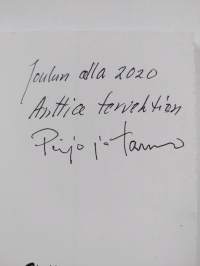 Joulun alla 2020
Anttia tervehtien
Pirjo ja Tarmo